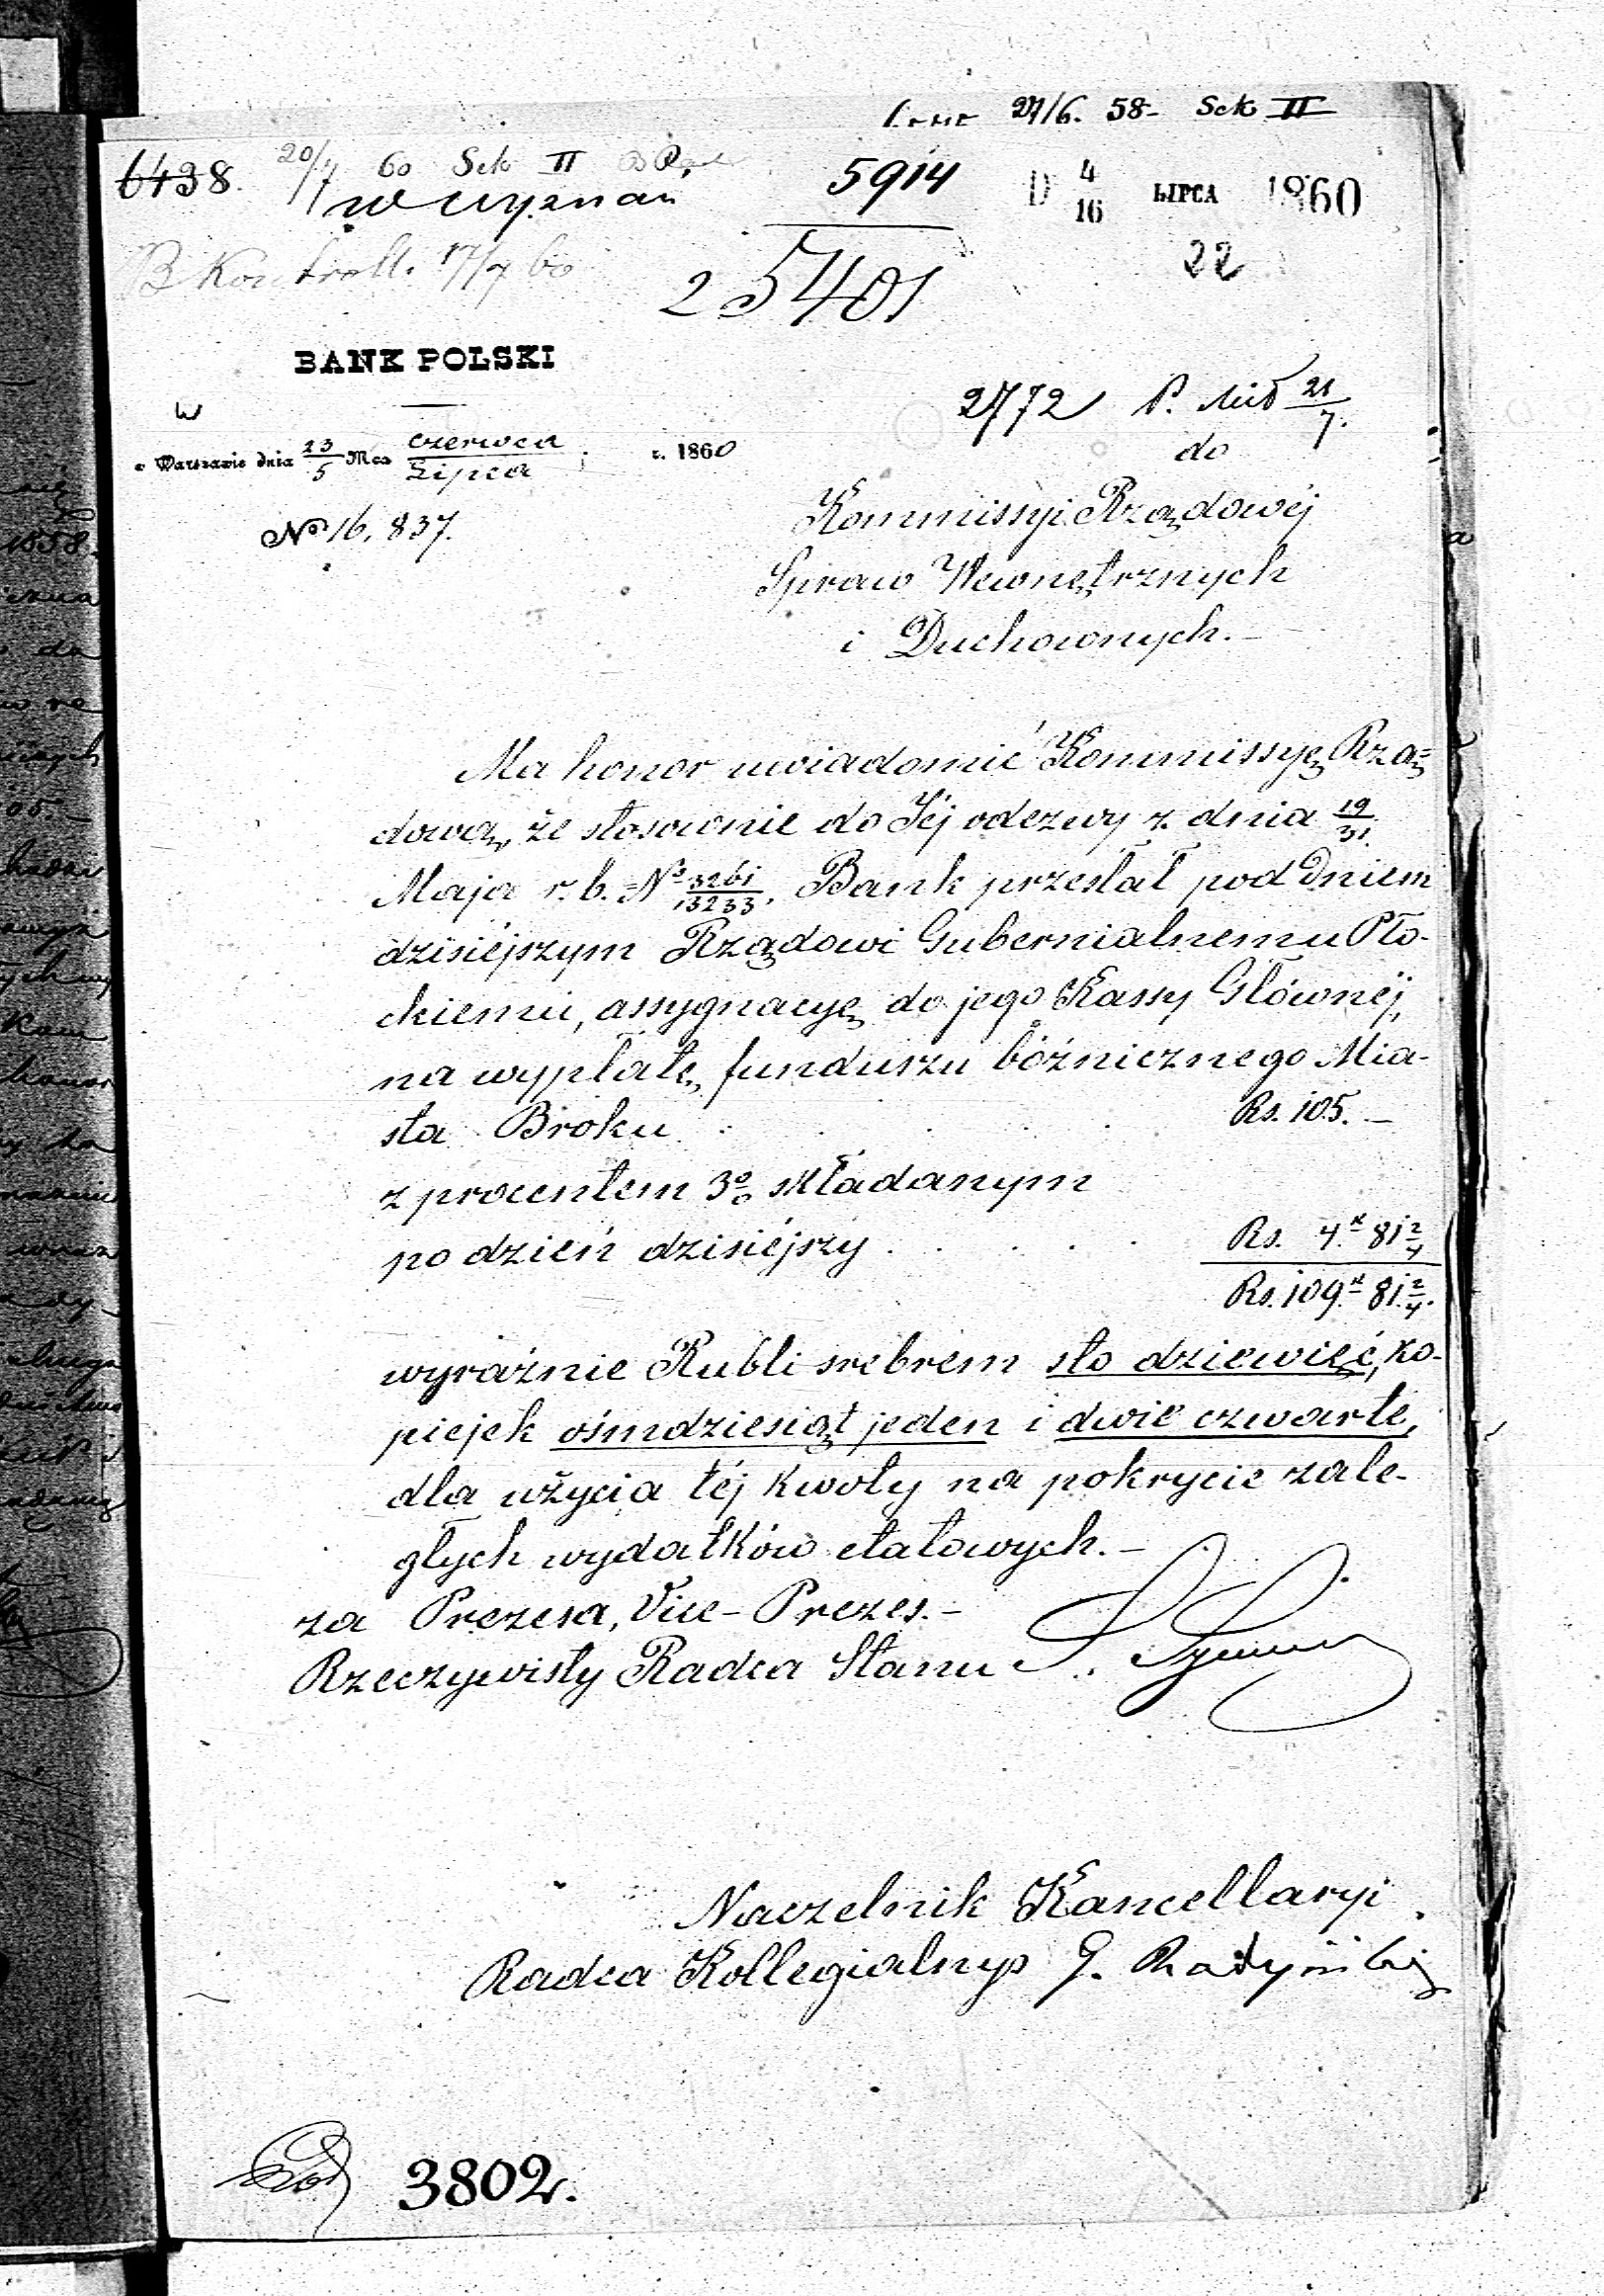 27/6. 58- Sek II
6438. 20/7 60 Sek II
5914
D 4/16 LIPCA 1860
W wyznań
22
B Kontroll. 17/7 60
25401
BANK POLSKI
2772 P. 21/7.
w Warszawie dnia 23/5 Mca czerwca/Lipca r. 1860
do
Kommissyi Rządowéj
No 16,837.
Spraw Wewnętrznych
i Duchownych.-
Ma honor uwiadomić Kommissyę Rzą=
dową, że stosownie do Jéj odezwy z dnia 19/31.
Maja r. b. No 3261/13233. Bank przesłał pod dniem
dzisiéjszym Rządowi Gubernialnemu Pło-
ckiemu, assygnacyę do jego Kassy Głównéj,
na wypłatę funduszu bóżnicznego Mia-
sta Broku . . . . Rs. 105.-
z procentem 3% składanym
po dzień dzisiéjszy . . . . . Rs. 4.k 81 2/4
Rs. 109.k 81 2/4.
wyraźnie Rubli srebrem sto dziewięć, ko-
piejek ośmdziesiąt jeden i dwie czwarte,
dla użycia téj kwoty na pokrycie zale-
głych wydatków etatowych.-
za Prezesa, Vice-Prezes.-
Rzeczywisty Radca Stanu
Naczelnik Kancellaryi
Radca Kollegialny
3802.